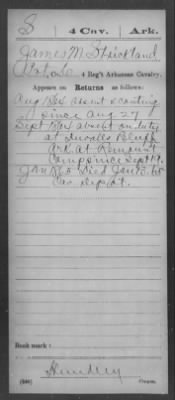 S 4 Cav. Ark.
James M. Strickland
Pvt, Co. 4 Reg't Arkansas Cavalry.
Appears on Returns as follows:
Aug 1864 absent scouting
since Aug 27
Sept 1864 absent on duty
at Duvalls Bluff
Ark at Remount
Camp since Sept 19.
Jan 1865 Died Jan 13, 65
Cav Depot.
Book mark:
(546) Copyist.